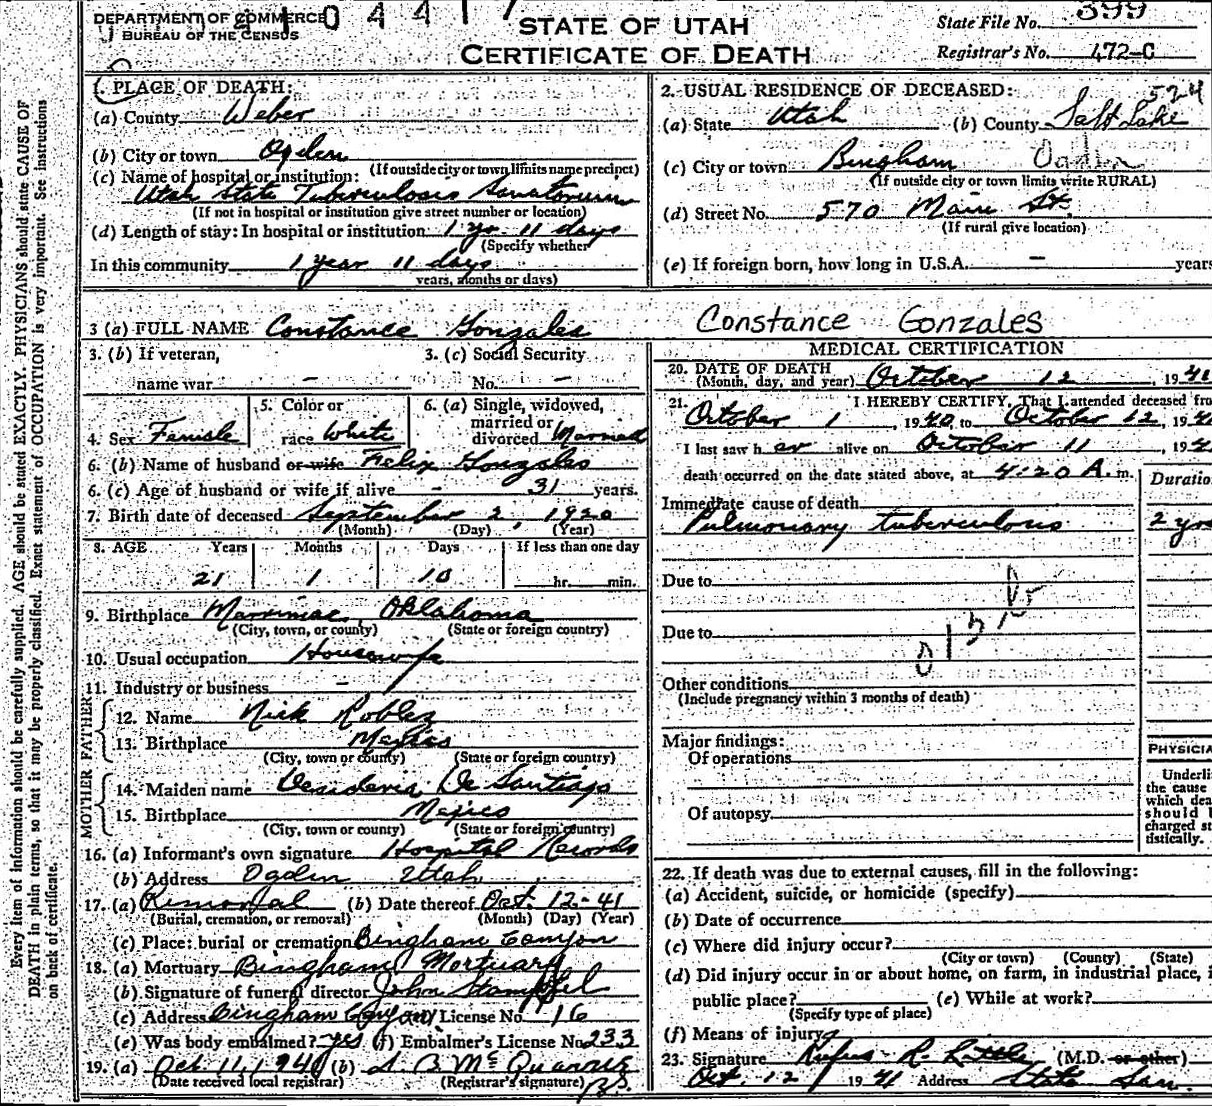 DEPARTMENT OF COMMERCE
BUREAU OF THE CENSUS
STATE OF UTAH
CERTIFICATE OF DEATH
State File No. 399
Registrar's No. 472-C
1. PLACE OF DEATH:
(a) County Weber
(b) City or town Ogden
(If outside city or town limits name precinct)
(c) Name of hospital or institution:
Utah State Tuberculosis Sanatorium
(If not in hospital or institution give street number or location)
(d) Length of stay: In hospital or institution 1 yr. 11 days
(Specify whether
In this community 1 year 11 days
years, months or days)
2. USUAL RESIDENCE OF DECEASED:
524
(a) State Utah (b) County Salt Lake
(c) City or town Bingham
(If outside city or town limits write RURAL)
(d) Street No. 570 Main St.
(If rural give location)
(e) If foreign born, how long in U.S.A. — years
3 (a) FULL NAME Constance Gonzales
Constance Gonzales
3. (b) If veteran,
name war –
3. (c) Social Security
No. –
4. Sex Female
5. Color or
race White
6. (a) Single, widowed,
married or
divorced Married
6. (b) Name of husband or wife Felix Gonzales
6. (c) Age of husband or wife if alive - 31 years.
7. Birth date of deceased September 2, 1920
(Month) (Day) (Year)
8. AGE Years Months Days If less than one day
21 1 10 hr. min.
9. Birthplace Marrimac, Oklahoma
(City, town, or county) (State or foreign country)
10. Usual occupation Housewife
11. Industry or business –
FATHER
12. Name Nick Roblez
13. Birthplace Mejico
(City, town or county) (State or foreign country)
MOTHER
14. Maiden name Desideria De Santiago
15. Birthplace Mejico
(City, town or county) (State or foreign country)
16. (a) Informant's own signature Hospital Records
(b) Address Ogden Utah
17. (a) Removal (b) Date thereof Oct. 12-41
(Burial, cremation, or removal) (Month) (Day) (Year)
(c) Place: burial or cremation Bingham Canyon
18. (a) Mortuary Bingham Mortuary
(b) Signature of funeral director John Stampfel
(c) Address Bingham Canyon License No. 16
(e) Was body embalmed? yes (f) Embalmer's License No. 233
19. (a) Oct 11, 194 (b)
(Date received local registrar) (Registrar's signature)
MEDICAL CERTIFICATION
20. DATE OF DEATH
(Month, day, and year) October 12, 1941
21. I HEREBY CERTIFY, That I attended deceased fro
October 1, 1940 to October 12, 194
I last saw h er alive on October 11, 194
death occurred on the date stated above, at 4:20 A. m.
Duratio
Immediate cause of death
Pulmonary tuberculosis 2 yrs
Due to
Due to
Other conditions
(Include pregnancy within 3 months of death)
Major findings:
Of operations
Of autopsy
PHYSICIA
Underli
the cause
which dea
should b
charged st
tistically.
22. If death was due to external causes, fill in the following:
(a) Accident, suicide, or homicide (specify)
(b) Date of occurrence
(c) Where did injury occur?
(City or town) (County) (State)
(d) Did injury occur in or about home, on farm, in industrial place, i
public place? (e) While at work?
(Specify type of place)
(f) Means of injury
23. Signature Rufus R. Little (M.D. or other)
Oct. 12 1941 Address State San.
Every item of information should be carefully supplied. AGE should be stated EXACTLY. PHYSICIANS should state CAUSE OF
DEATH in plain terms, so that it may be properly classified. Exact statement of OCCUPATION is very important. See instructions
on back of certificate.